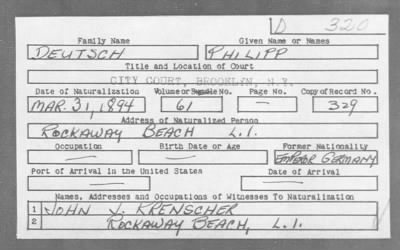 D 320
Family Name Given Name or Names
DEUTSCH PHILIPP
Title and Location of Court
CITY COURT, BROOKLYN, N.Y.
Date of Naturalization Volume or Bundle No. Page No. Copy of Record No.
MAR. 31, 1894 61 — 329
Address of Naturalized Person
ROCKAWAY BEACH L.I.
Occupation Birth Date or Age Former Nationality
— — EMPEROR GERMANY
Port of Arrival in the United States Date of Arrival
— —
Names, Addresses and Occupations of Witnesses To Naturalization
1 JOHN J. KRENSCHER
2 ROCKAWAY BEACH, L.I.